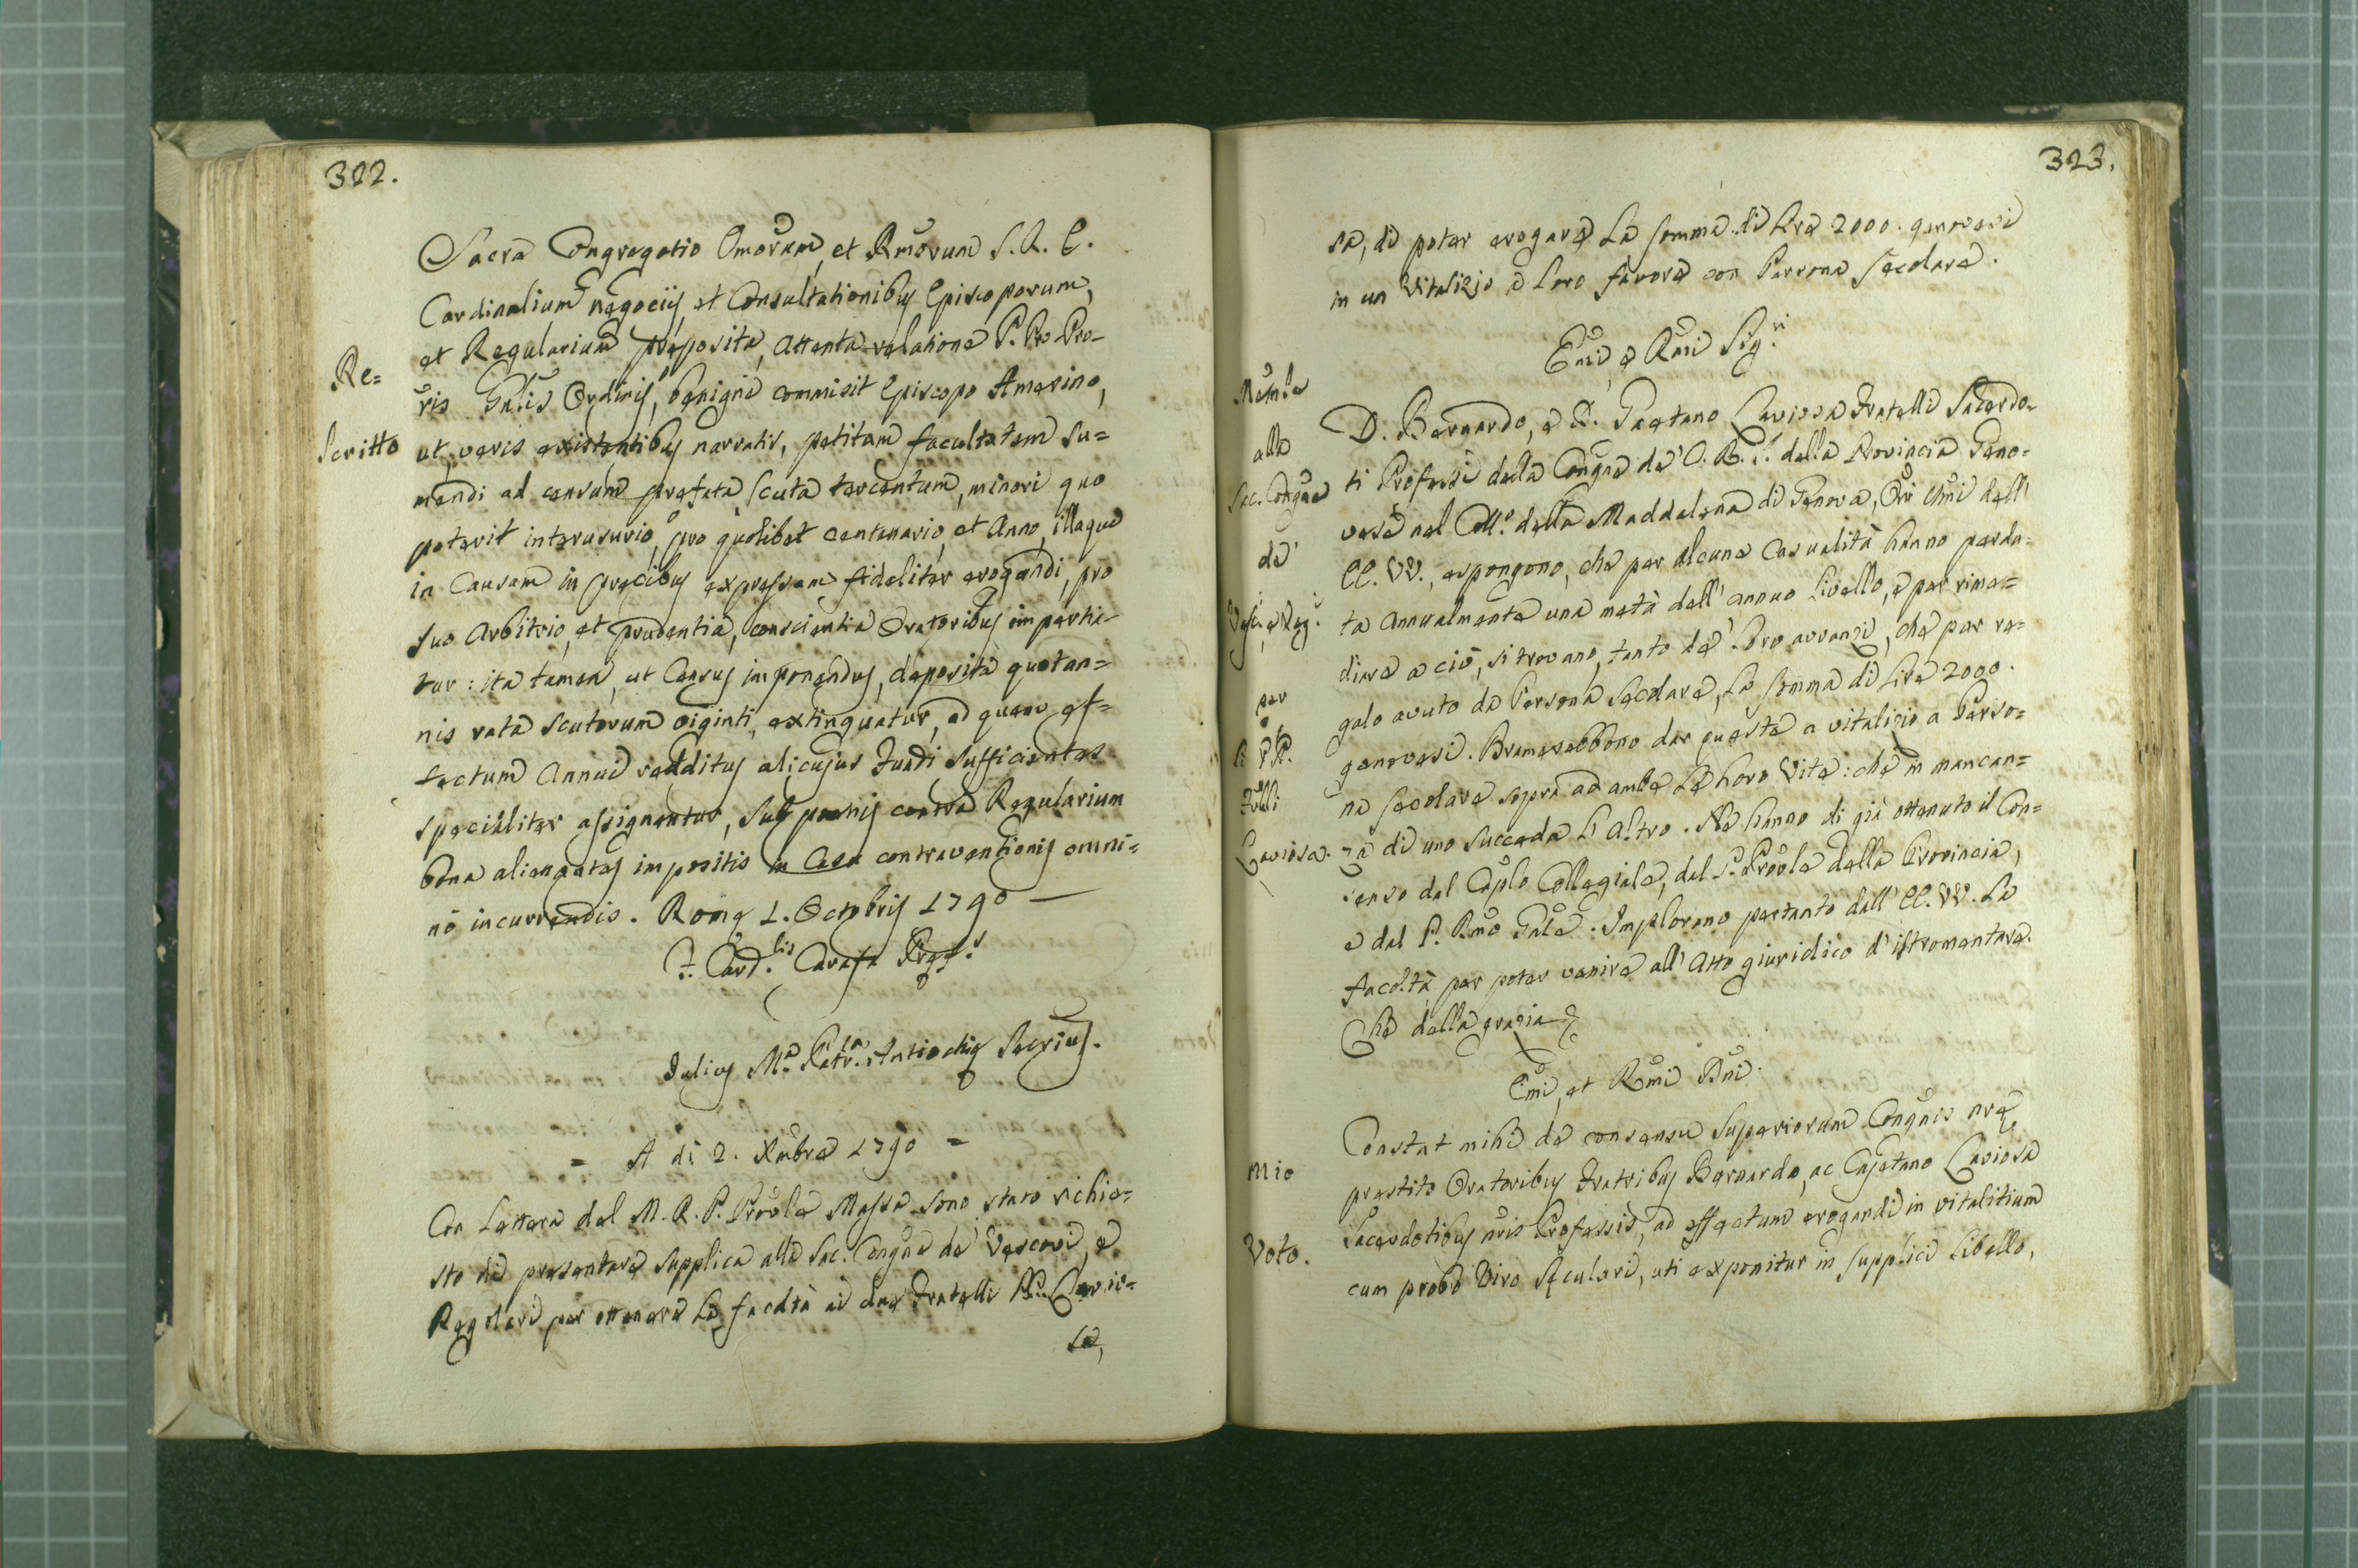 322.
Sacra Congregatio Emorum, et Rmorum S. R. E.
Cardinalium negociis et Consultationibus Episcoporum,
et Regularium preposita, attenta relatione P. Pro-Pro-
ris Gnlis Ordinis, benigne commisit Episcopo Amerino,
ut, veris existentibus narratis, petitam facultatem su=
mendi ad censum prefata scuta tercentum, minori quo
poterit interusurio, pro quolibet centenario, et Anno, illaque
in Causam in precibus expressam fideliter erogandi, pro
suo Arbitrio, et prudentia, conscientia Oratoribus impertia-
tur: ita tamen, ut Census imponendus, deposita quotan=
nis rata scutorum viginti, extinguatur, ad quem ef=
fectum Annui redditus alicujus Fundi sufficientes
specialiter assignentur, sub poenis contra Regularium
bona alienantes impositis in Casu contraventionis omni=
no incurrendis. Rome 1. Octobris 1790 —
F. Card.lis Carafa Pref.s
Julius Ma. Patr. Antiochie Secrius.
Re=
scritto
= A di 2. Xmbre 1790 =
Con Lettera del M. R. P. Provle Massa sono stato richie=
sto di presentare supplica alla Sac. Congne de' Vescovi, e
Regolari per ottenere La facoltà ai due Fratelli PP. Cavio=
sa,
323.
sa, di poter erogare La somma di Lire 2000. genovesi
in un Vitalizio a Loro favore con Persona secolare.
Emi e Rmi Sig.ri
D. Bernardo, e D. Gaetano Caviosa Fratelli Sacerdo-
ti Professi della Congne de' C. R. S. della Provincia Geno=
vese nel Coll.o della Maddalena di Genova, Ori Umi dell'
EE. VV., espongono, che per alcune Casualità hanno perdu=
ta annualmente una metà dell' annuo Livello, e per rime=
diare a ciò, si trovano, tanto de' Loro avvanzi, che per re=
galo avuto da Persona secolare, La somma di Lire 2000.
genovesi. Bramerebbono dar queste a vitalizio a Perso=
na secolare sopra ad ambe Le Loro Vite: che in mancan=
za di uno succeda L'Altro. Ne hanno di già ottenuto il Con=
senso del Caplo Collegiale, del P. Provle della Provincia,
e del P. Rmo Gnle. Implorano pertanto dall' EE. VV. La
facoltà per poter venire all' Atto giuridico d' istromentare.
Che della grazia
Emi, et Rmi Dni.
Constat mihi de consensu Superiorum Congnis nre
prestito Oratoribus Fratribus Bernardo, ac Cajetano Caviosa
Sacerdotibus nris Professis, ad effectum erogandi in vitalitium
cum probo Viro seculari, uti exponitur in supplici Libello,
alla
Sac. Congne
de'
per
PP.
Frlli
Caviosa.
Mio
Voto.